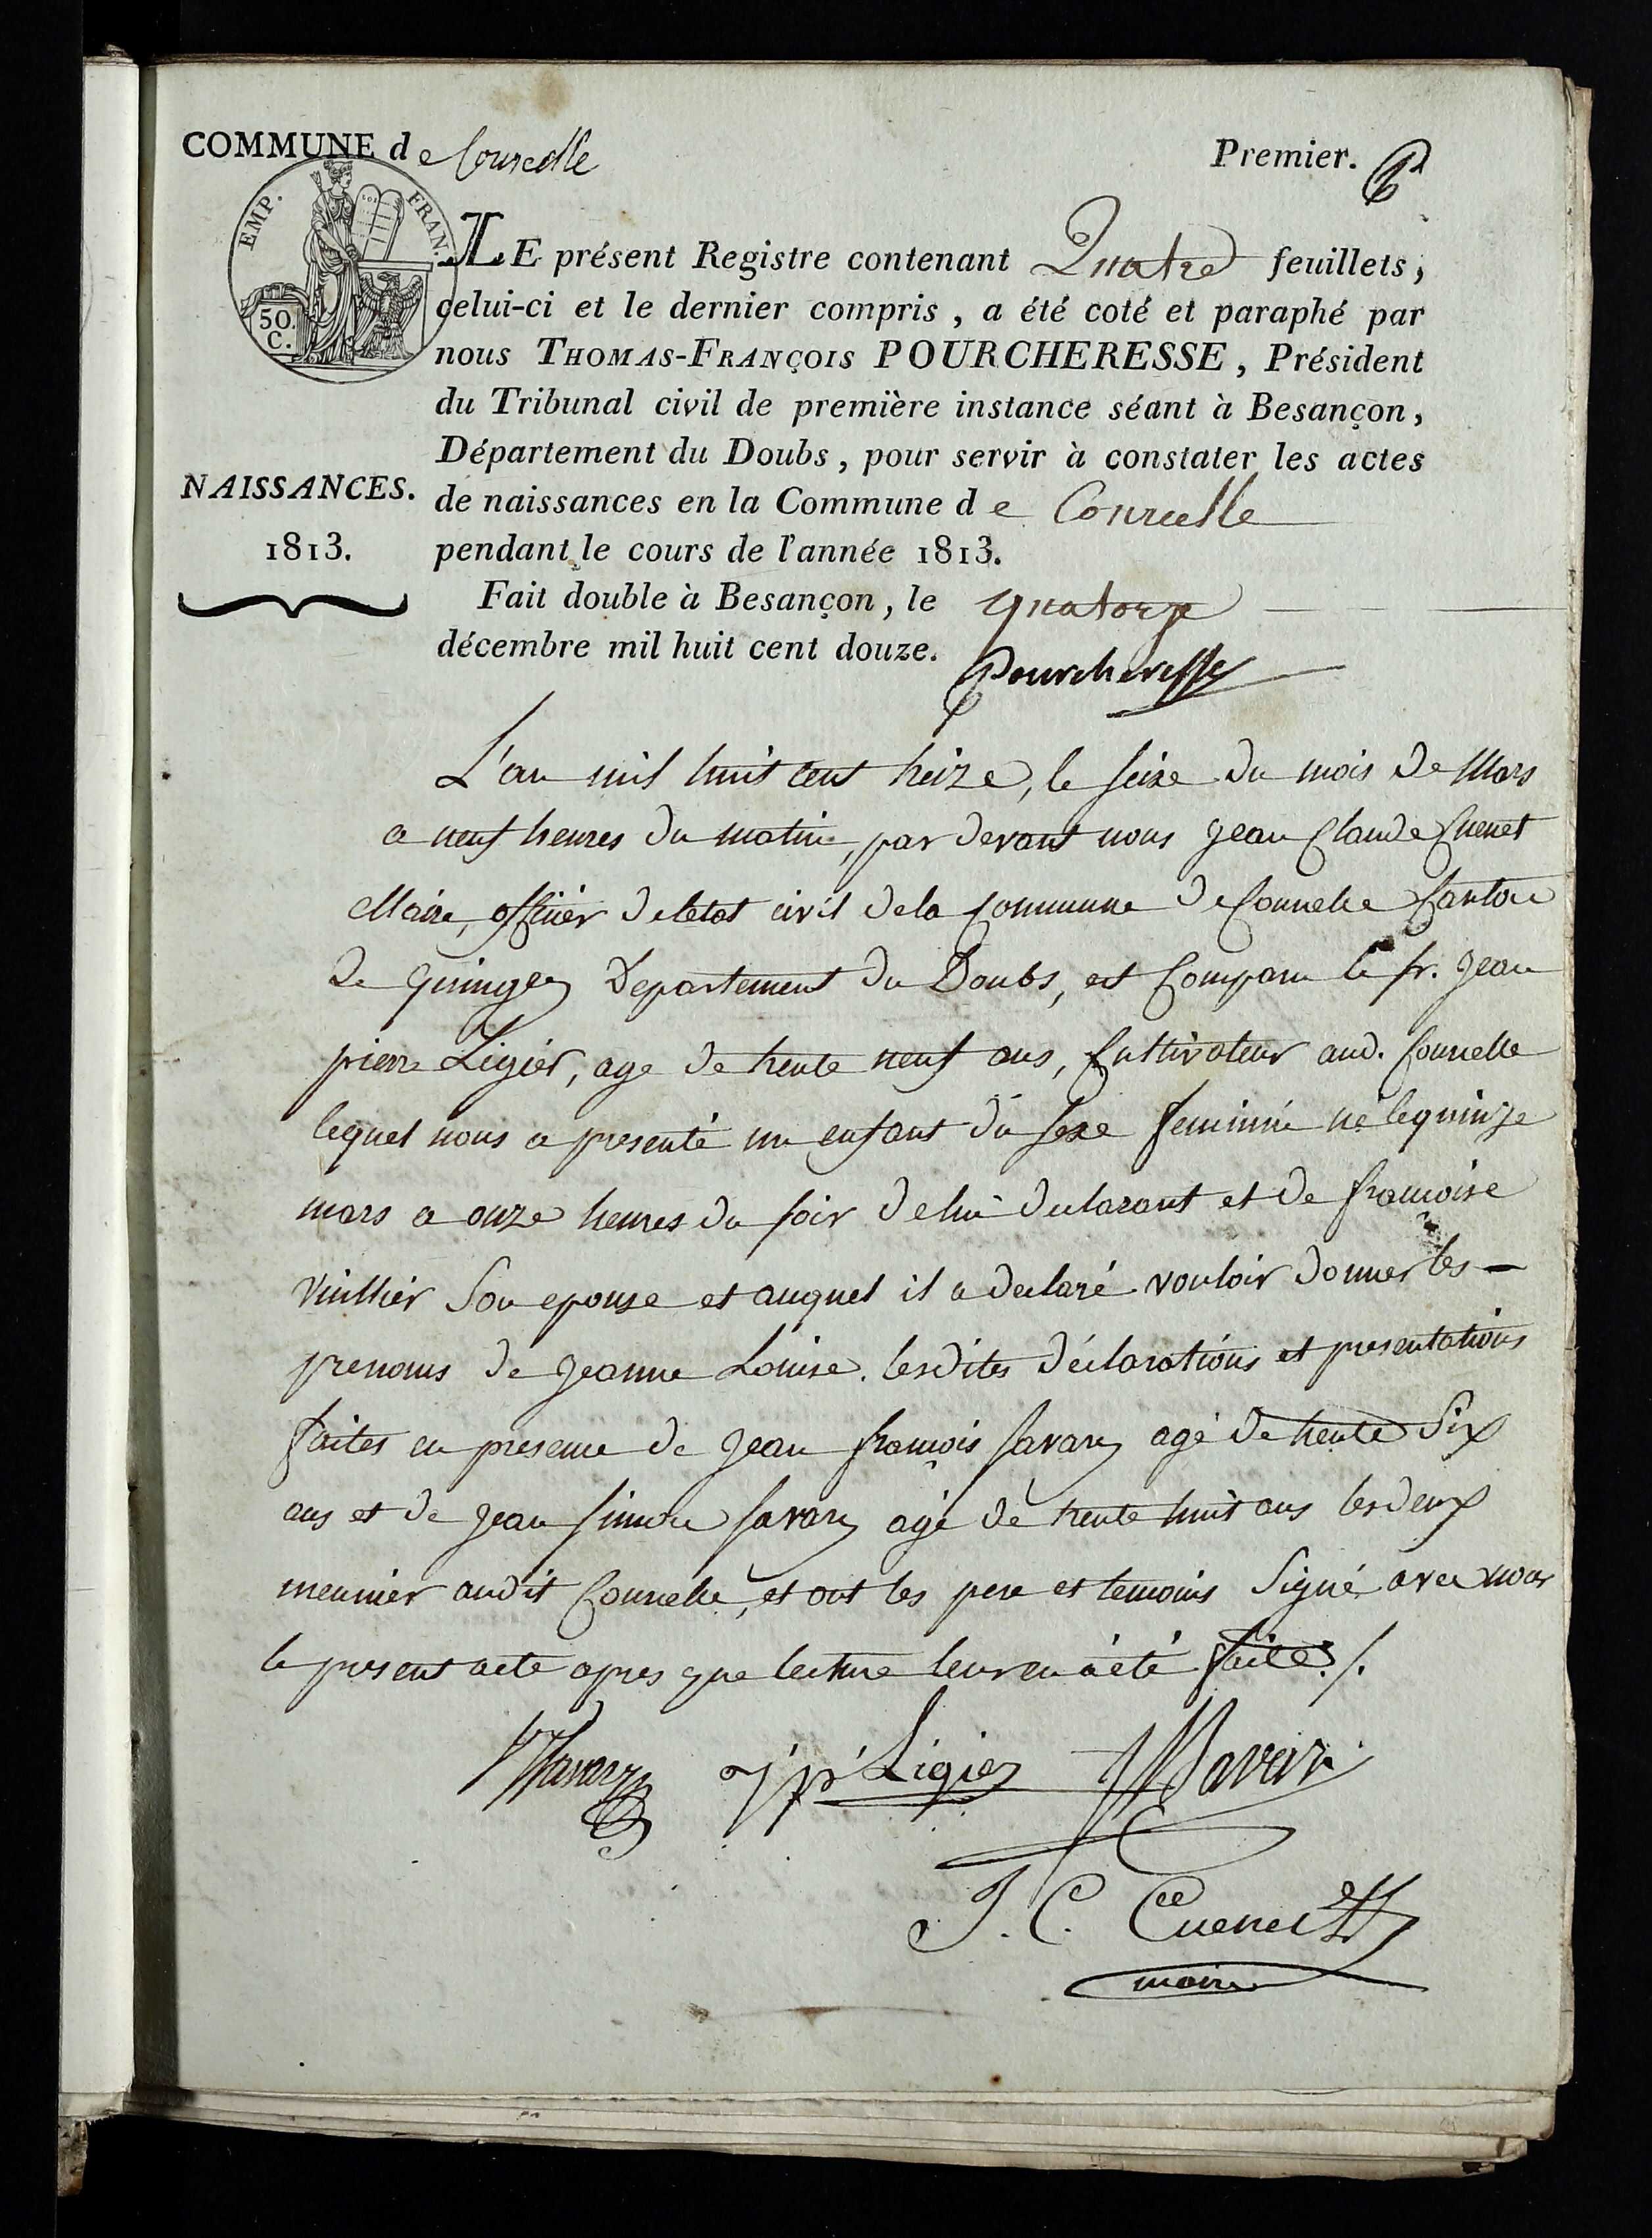 COMMUNE de Courcelle
Premier.
EMP. FRAN.
50.
C.
LE présent Registre contenant Quatre feuillets,
celui-ci et le dernier compris, a été coté et paraphé par
nous THOMAS-FRANÇOIS POURCHERESSE, Président
du Tribunal civil de première instance séant à Besançon,
Département du Doubs, pour servir à constater les actes
NAISSANCES.
de naissances en la Commune de Courcelle
1813.
pendant le cours de l'année 1813.
Fait double à Besançon, le quatorze
décembre mil huit cent douze.
Pourcheresse
L'an mil huit cent treize, le seize du mois de Mars
a neuf heures du matin, par devant nous Jean Claude Cuenet
Maire, officier de letat civil de la Commune de Courcelle Canton
de Quingey Departement du Doubs, est Comparu le sr. Jean
pierre Ligier, age de trente neuf ans, Cultivateur aud. Courcelle
lequel nous a presenté un enfant du sexe feminin né le quinze
mars a onze heures du soir de lui declarant et de francoise
Vuillier Son epouse et auquel il a declaré vouloir donner les
prenoms de Jeanne Louise. lesdites déclarations et presentations
faites en presence de Jean françois Savary agé de trente Six
ans et de Jean simon Savary agé de trente huit ans les deux
meunier audit Courcelle, et ont les pere et temoins Signé avec nous
le present acte apres que lecture leur en a été faite ./.
Savary jp Ligier Savari
J. C. Cuenet
maire